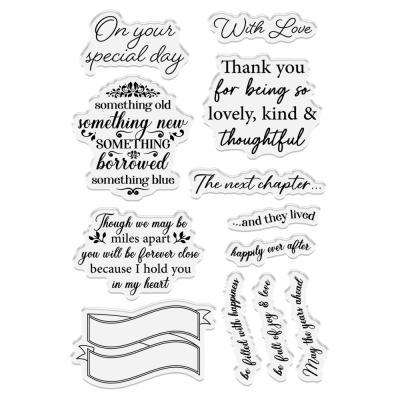 On your
special day
With Love
something old
something new
SOMETHING
borrowed
something blue
Thank you
for being so
lovely, kind &
thoughtful
The next chapter...
...and they lived
happily ever after
Though we may be
miles apart
you will be forever close
because I hold you
in my heart
be filled with happiness
be full of joy & love
May the years ahead